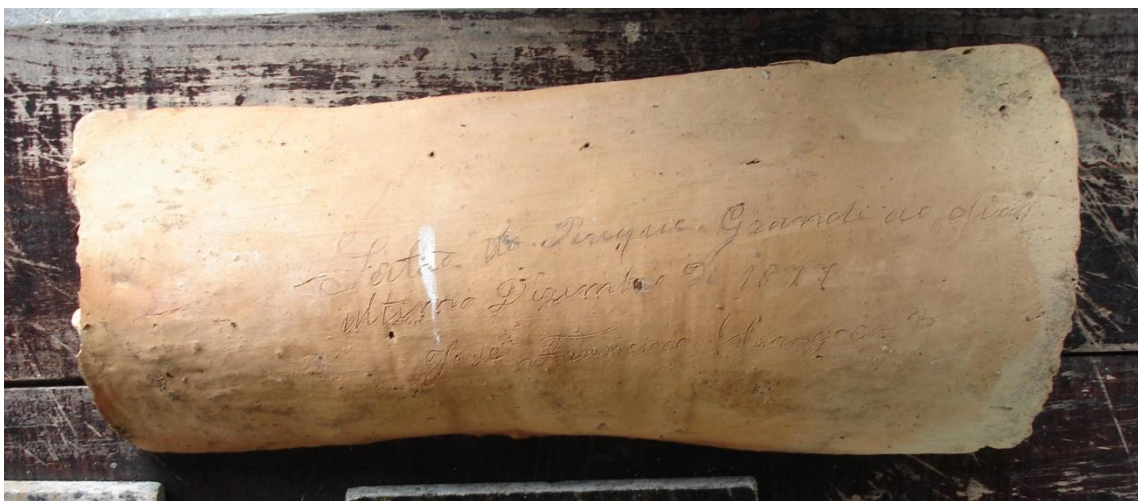 Sertão do Piriqui Grandi ao dia
ultimo Dizimbro de 1877
José Francisco